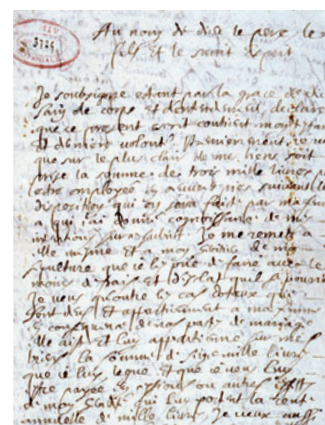 5725
Au nom de dieu le pere, le
fils et le saint esprit
Je soubsigne estant par la grace de di
sain de corps et dentendement, declare
que ce present escrit contient mon
et derniere volonté. Premierement Je v
que sur le plus clair de mes biens soit
prise la somme de trois mille livres p
estre employee en œuvres pies suivant la
disposition qui en sera fait par ma
a qui Jai donné connoissance de mes
intentions sur ce Je me remets a
elle mesme et a mon de ma
sepulture que je la prie de faire avec le
moins de frais et desclat quil se pourra
Je veus quoutre les cas dotaux qui
sont deus et appartiennent a ma
en consequence de nos pactes de mariage
elle ait et luy appartienne sur mes
biens la somme de mille livres
que je luy legue et que je veu luy
estre payee en ou autres
de mon qui luy portent la rente
annuelle de mille livres, Je veux aussi